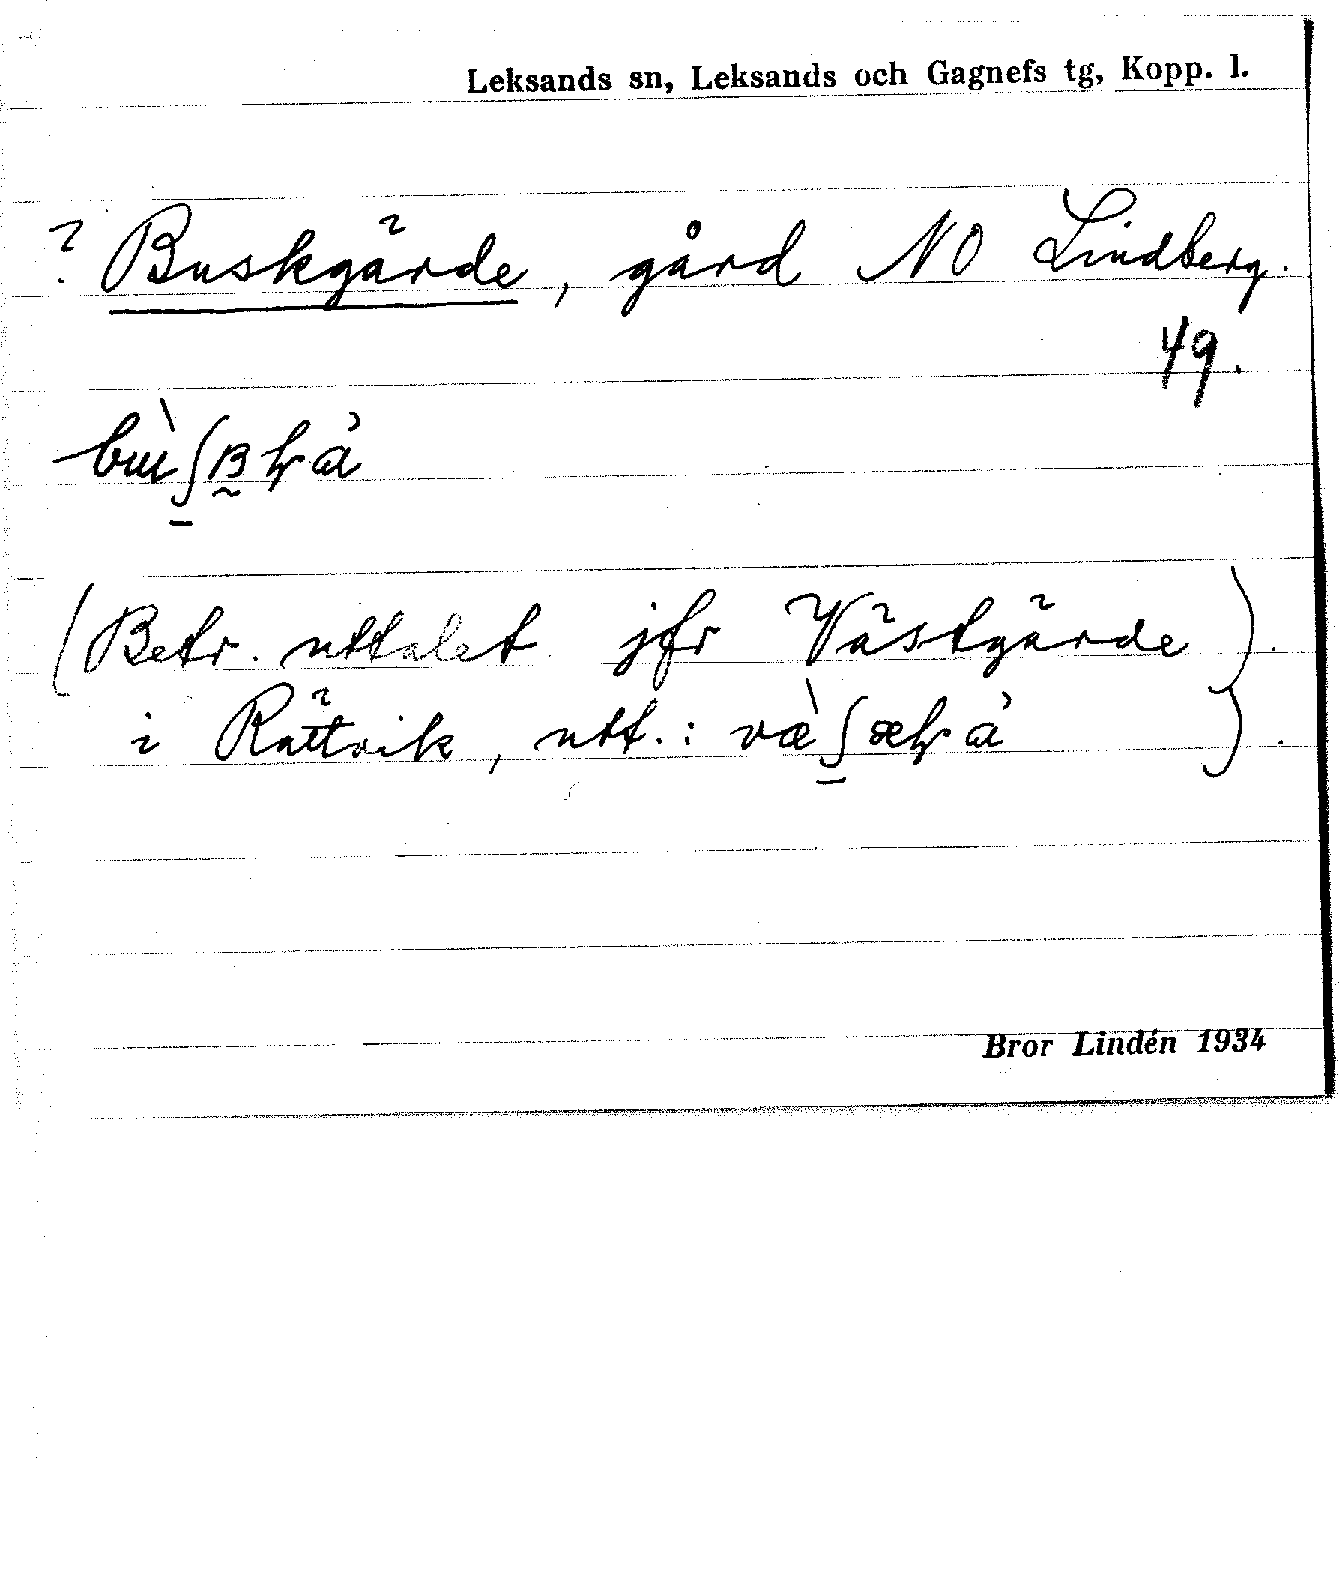 Leksands sn, Leksands och Gagnefs tg, Kopp. l.
? Buskgärde, gård NO Lindberg.
49.
(Betr. uttalet jfr Västgärde).
i Rättvik, utt.:
Bror Lindén 1934